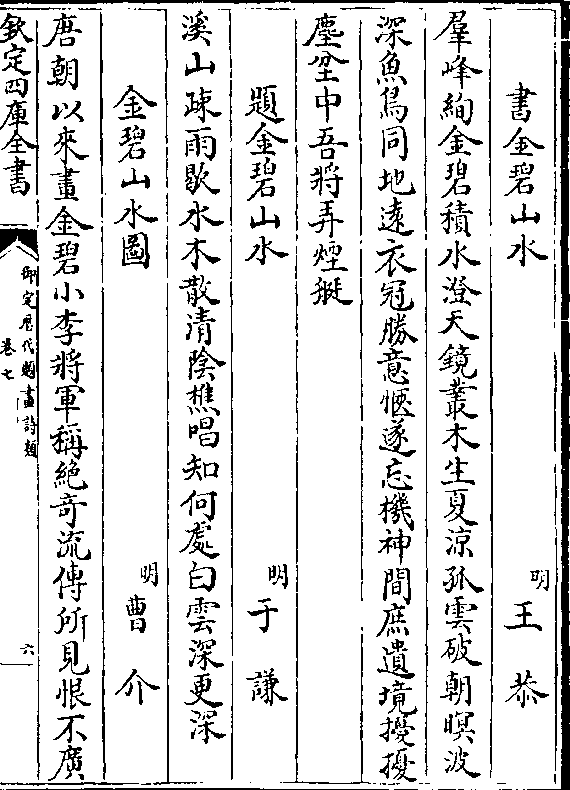 書金碧山水　明王恭
羣峰絢金碧積水澄天鏡叢木生夏涼孤雲破朝暝波
深魚鳥同地遠衣冠勝意愜遂忘機神間庶遺境擾擾
塵坌中吾將弄煙艇
題金碧山水　明于謙
溪山疎雨歇水木散清陰樵唱知何處白雲深更深
金碧山水圖　明曹介
唐朝以來畫金碧小李將軍稱絶奇流傳所見恨不廣
欽定四庫全書　御定歴代題畫詩類　卷七　六